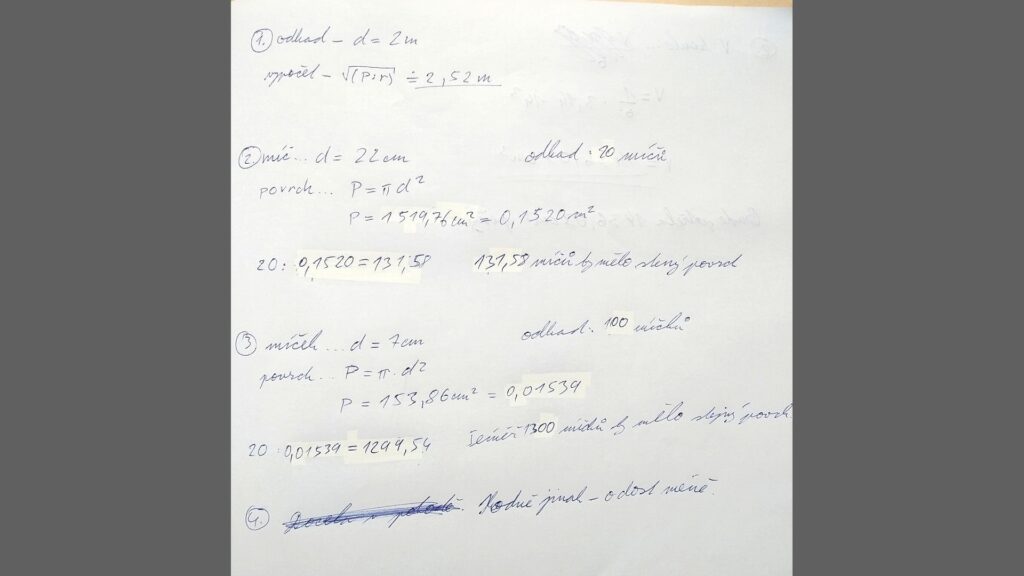 1. odhad - d = 2m
výpočet - √(P:π) ≐ 2,52m
2. míč... d = 22cm odhad: 20 míčů
povrch... P = πd²
P = 1519,76cm² = 0,1520m²
20 : 0,1520 = 131,58 131,58 míčů by mělo stejný povrch
3 míček... d = 7cm odhad: 100 míčků
povrch... P = π·d²
P = 153,86cm² = 0,01539
20 : 0,01539 = 1299,54 Téměř 1300 míčků by mělo stejný povrch
4. Hodně jinak - o dost méně.